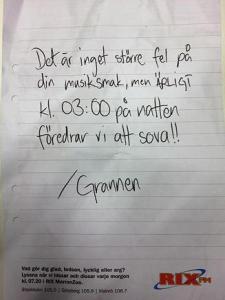 Det är inget större fel på
din musiksmak, men ÄRLIGT
kl. 03:00 på natten
föredrar vi att sova!!
/Grannen
Vad gör dig glad, ledsen, lycklig eller arg?
Lyssna när vi hissar och dissar varje morgon
kl. 07.20 i RIX MorronZoo.
Stockholm 105.5 | Göteborg 105.9 | Malmö 106.7
RIX FM